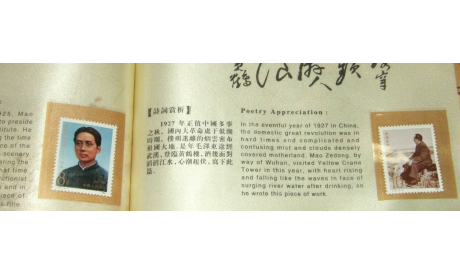 1925, Mao
to preside
stitute. He
ng the time
ce of the
scenery
ing the
hat time
ctionist
and in
ce of
s life
8分
【詩詞賞析】
1927年正值中國多事
之秋，國內大革命處于低潮
時期，複雜混亂的烟雲密布
祖國大地。是年毛澤東途經
武漢，登臨黃鶴樓，酒後面對
滔滔江水，心潮起伏，寫下此
篇。
Poetry Appreciation :
In the eventful year of 1927 in China,
the domestic great revolution was in
hard times and complicated and
confusing mist and clouds densely
covered motherland. Mao Zedong, by
way of Wuhan, visited Yellow Crane
Tower in this year, with heart rising
and falling like the waves in face of
surging river water after drinking, so
he wrote this piece of work.